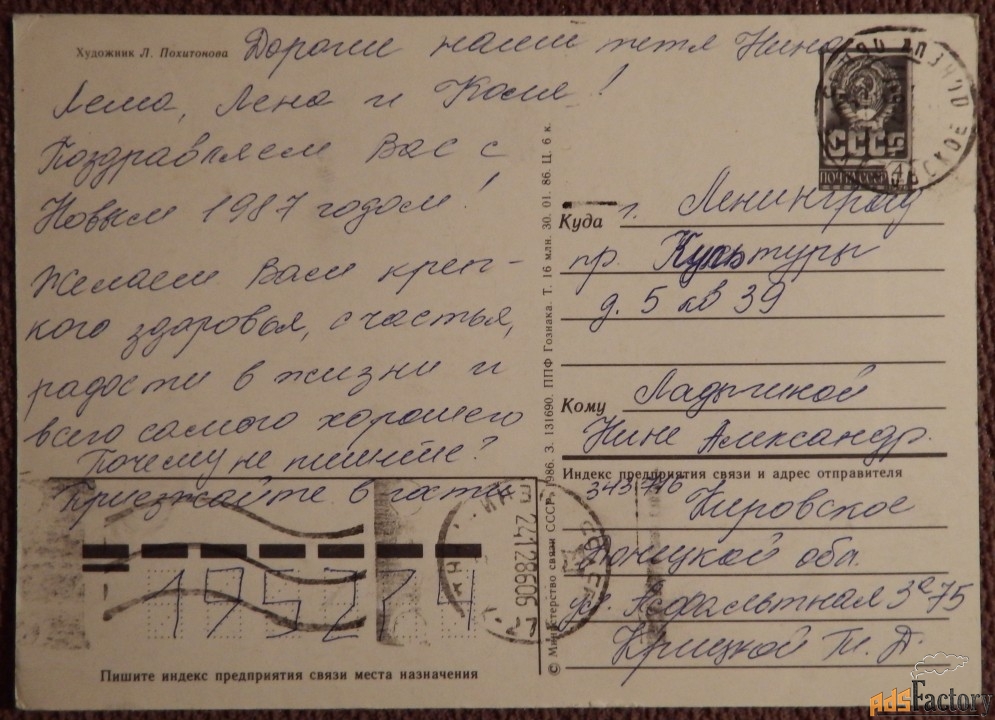 Художник Л. Похитонова
Дорогие наши тетя Нина
Лена и Коля!
Поздравляем Вас с
Новым 1987 годом!
Желаем Вам креп-
кого здоровья, счастья,
радости в жизни и
всего самого хорошего
Почему не пишите?
Приезжайте в гости
Пишите индекс предприятия связи места назначения
© Министерство связи СССР, 1986. З. 131690. ППФ Гознака. Т. 16 млн. 30. 01. 86. Ц. 6 к.
СССР
ПОЧТА СССР 4
Куда г. Ленинград
пр. Культуры
д. 5 кв 39
Кому Ладыгиной
Нине Александр.
Индекс предприятия связи и адрес отправителя
Кировское
Донецкой обл.
ул. Асфальтная 3а 75
Крицкой Т. Д.
24128606
AdsFactory